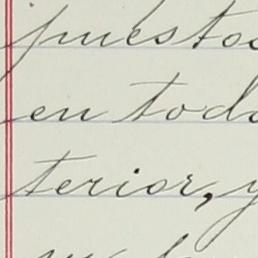 puestos
en todo
terior, y